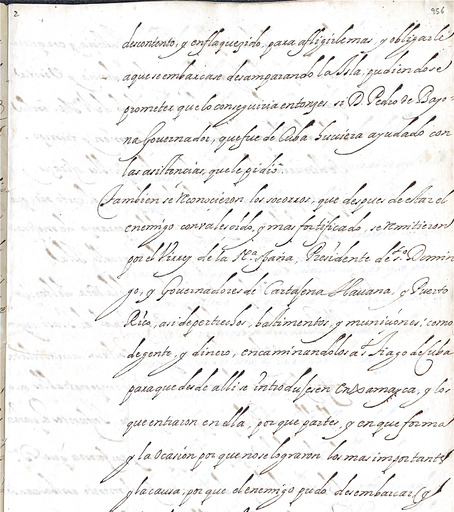 2
956
descontento, y enflaquezido, para afligirle mas, y obligarle
a que se embarcase desamparando la Isla, pudiendose
prometer que lo conseguiria entonçes si D. Pedro de Bayo-
na Governador, que fue de Cuba huviera ayudado con
las asistencias, que le pidio
Tambien se reconocieron los socorros, que despues de estar el
enemigo convalesçido, y mas fortificado, se remitieron
por el Virrey de la Nª. España, Presidente de Sto. Domin-
go, y Governadores de Cartagena Havana, y Puerto
Rico, asi de pertrechos, bastimentos, y muniçiones; como
de gente, y dinero, encaminandolos a St. Tiago de Cuba
para que desde alli se introdujesen en Xamayca, y los
que entraron en ella, por que partes, y en que forma
y la ocasion por que no se lograron los mas importantes
y la causa, por que el enemigo pudo desembarcar (y